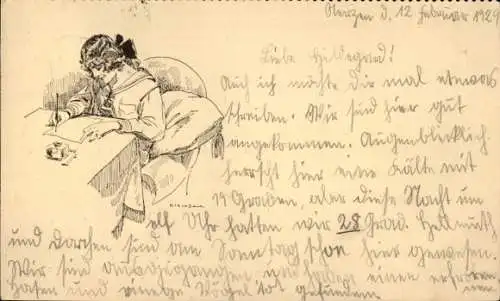 Sterzen d. 12 Februar 1929
Liebe Hildegard!
Auch ich möchte Dir mal etwas
schreiben. Wir sind hier gut
angekommen. Augenblicklich
herrscht hier eine Kälte mit
19 Graden, aber diese Nacht um
elf Uhr hatten wir 28 Grad. Hellmuth
und Dorchen sind am Sonntag schon hier gewesen.
Wir sind ausgegangen und haben einen erfrorenen
Hasen und einige Vögel tot gefunden